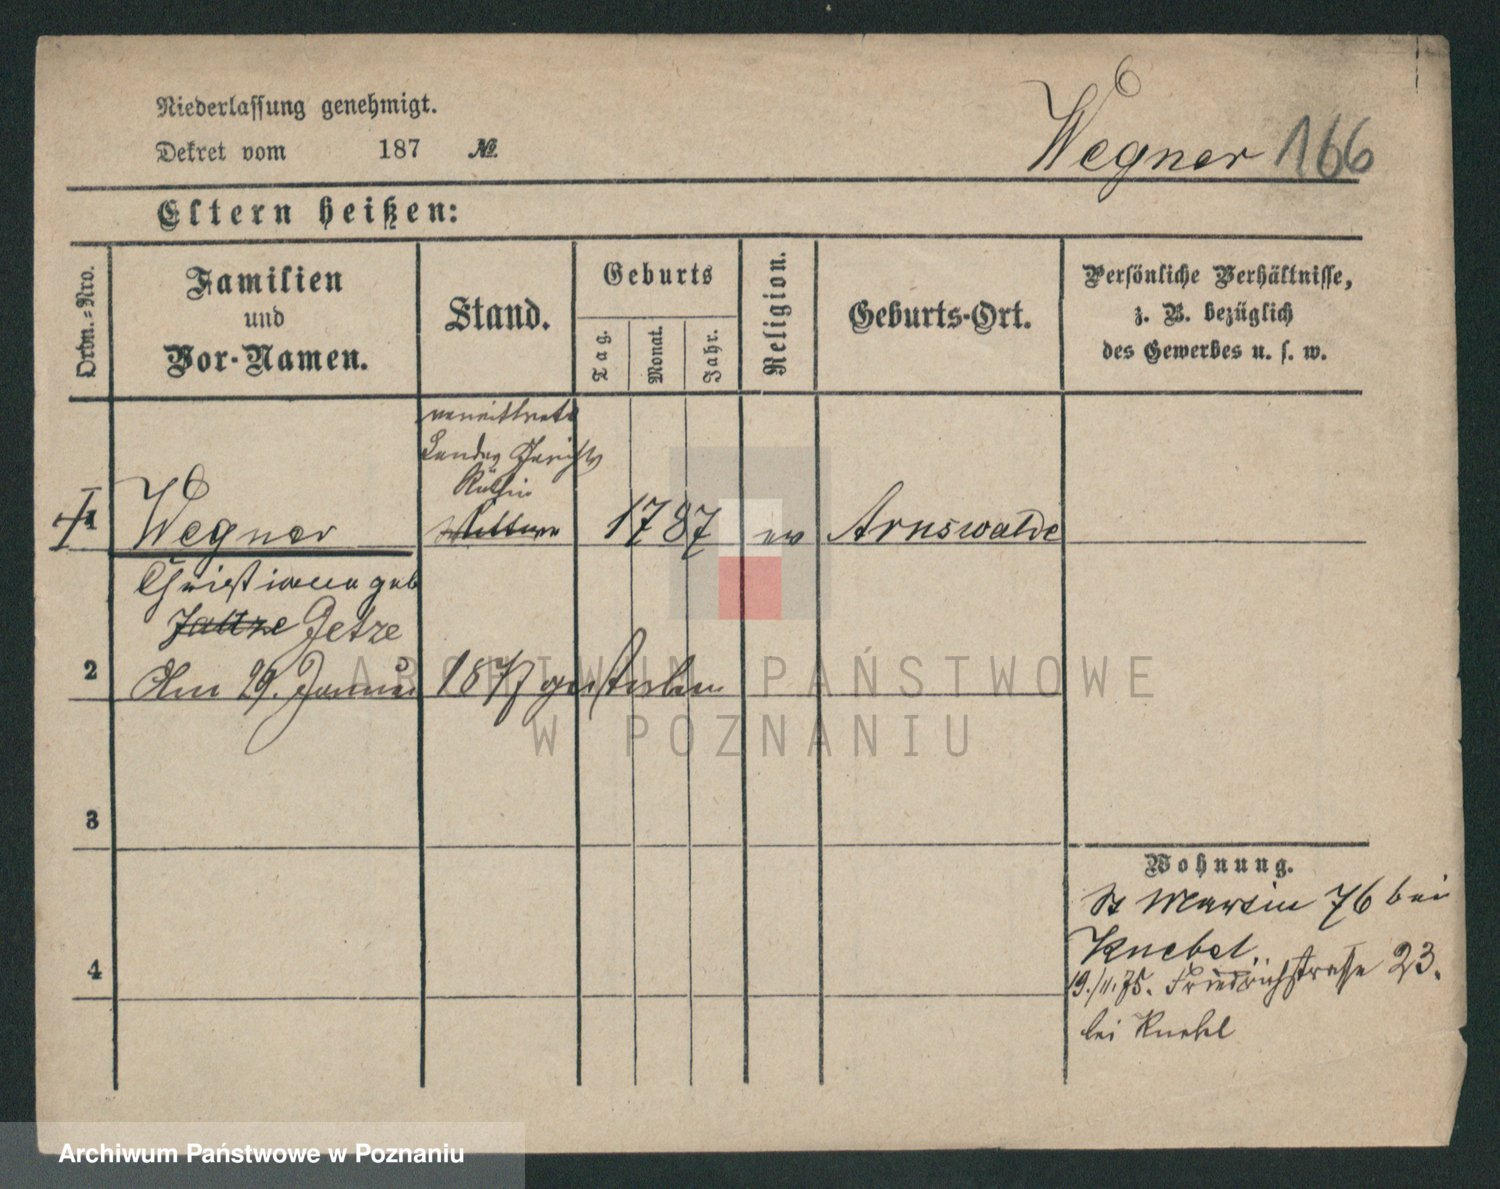 Niederlassung genehmigt.
Dekret vom 187 №.
Wegner 166
Eltern heißen:
Ordn.-Nro.
Familien
und
Vor-Namen.
Stand.
Geburts
Tag.
Monat.
Jahr.
Religion.
Geburts-Ort.
Persönliche Verhältnisse,
z. B. bezüglich
des Gewerbes u. s. w.
Landes Gerichts
Räthin
1 Wegner 1787 ev Arnswalde
Christiane geb
Jaltze Jetze
2 Am 29. Januar 1877 gestorben
3
4
Wohnung.
St Martin 76 bei
Knebel.
19./11.75. Friedrichstrasse 23.
bei Knebel
ARCHIWUM PAŃSTWOWE
W POZNANIU
Archiwum Państwowe w Poznaniu